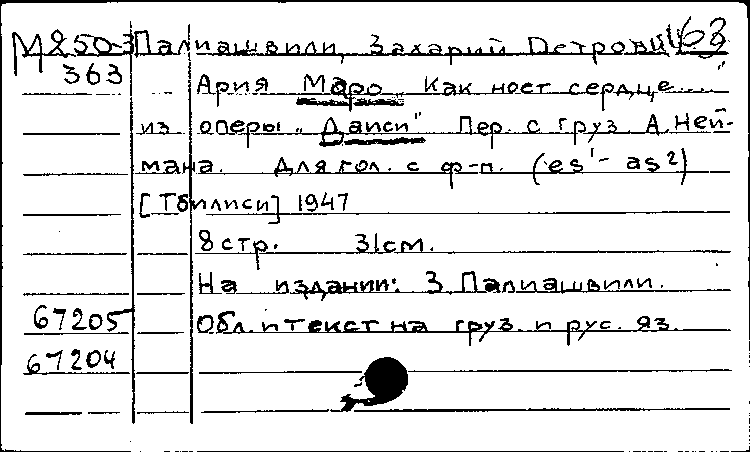 М250-3 Палиашвили, Захарий Петрович 163
363 Ария Маро „Как ноет сердце..."
из оперы „Даиси" Пер. с груз. А. Ней-
мана. Для гол. с ф-п. (es¹ - as²)
[Тбилиси] 1947
8 стр. 31см.
На издании: З. Палиашвили.
67205 Обл. и текст на груз. и рус. яз.
67204